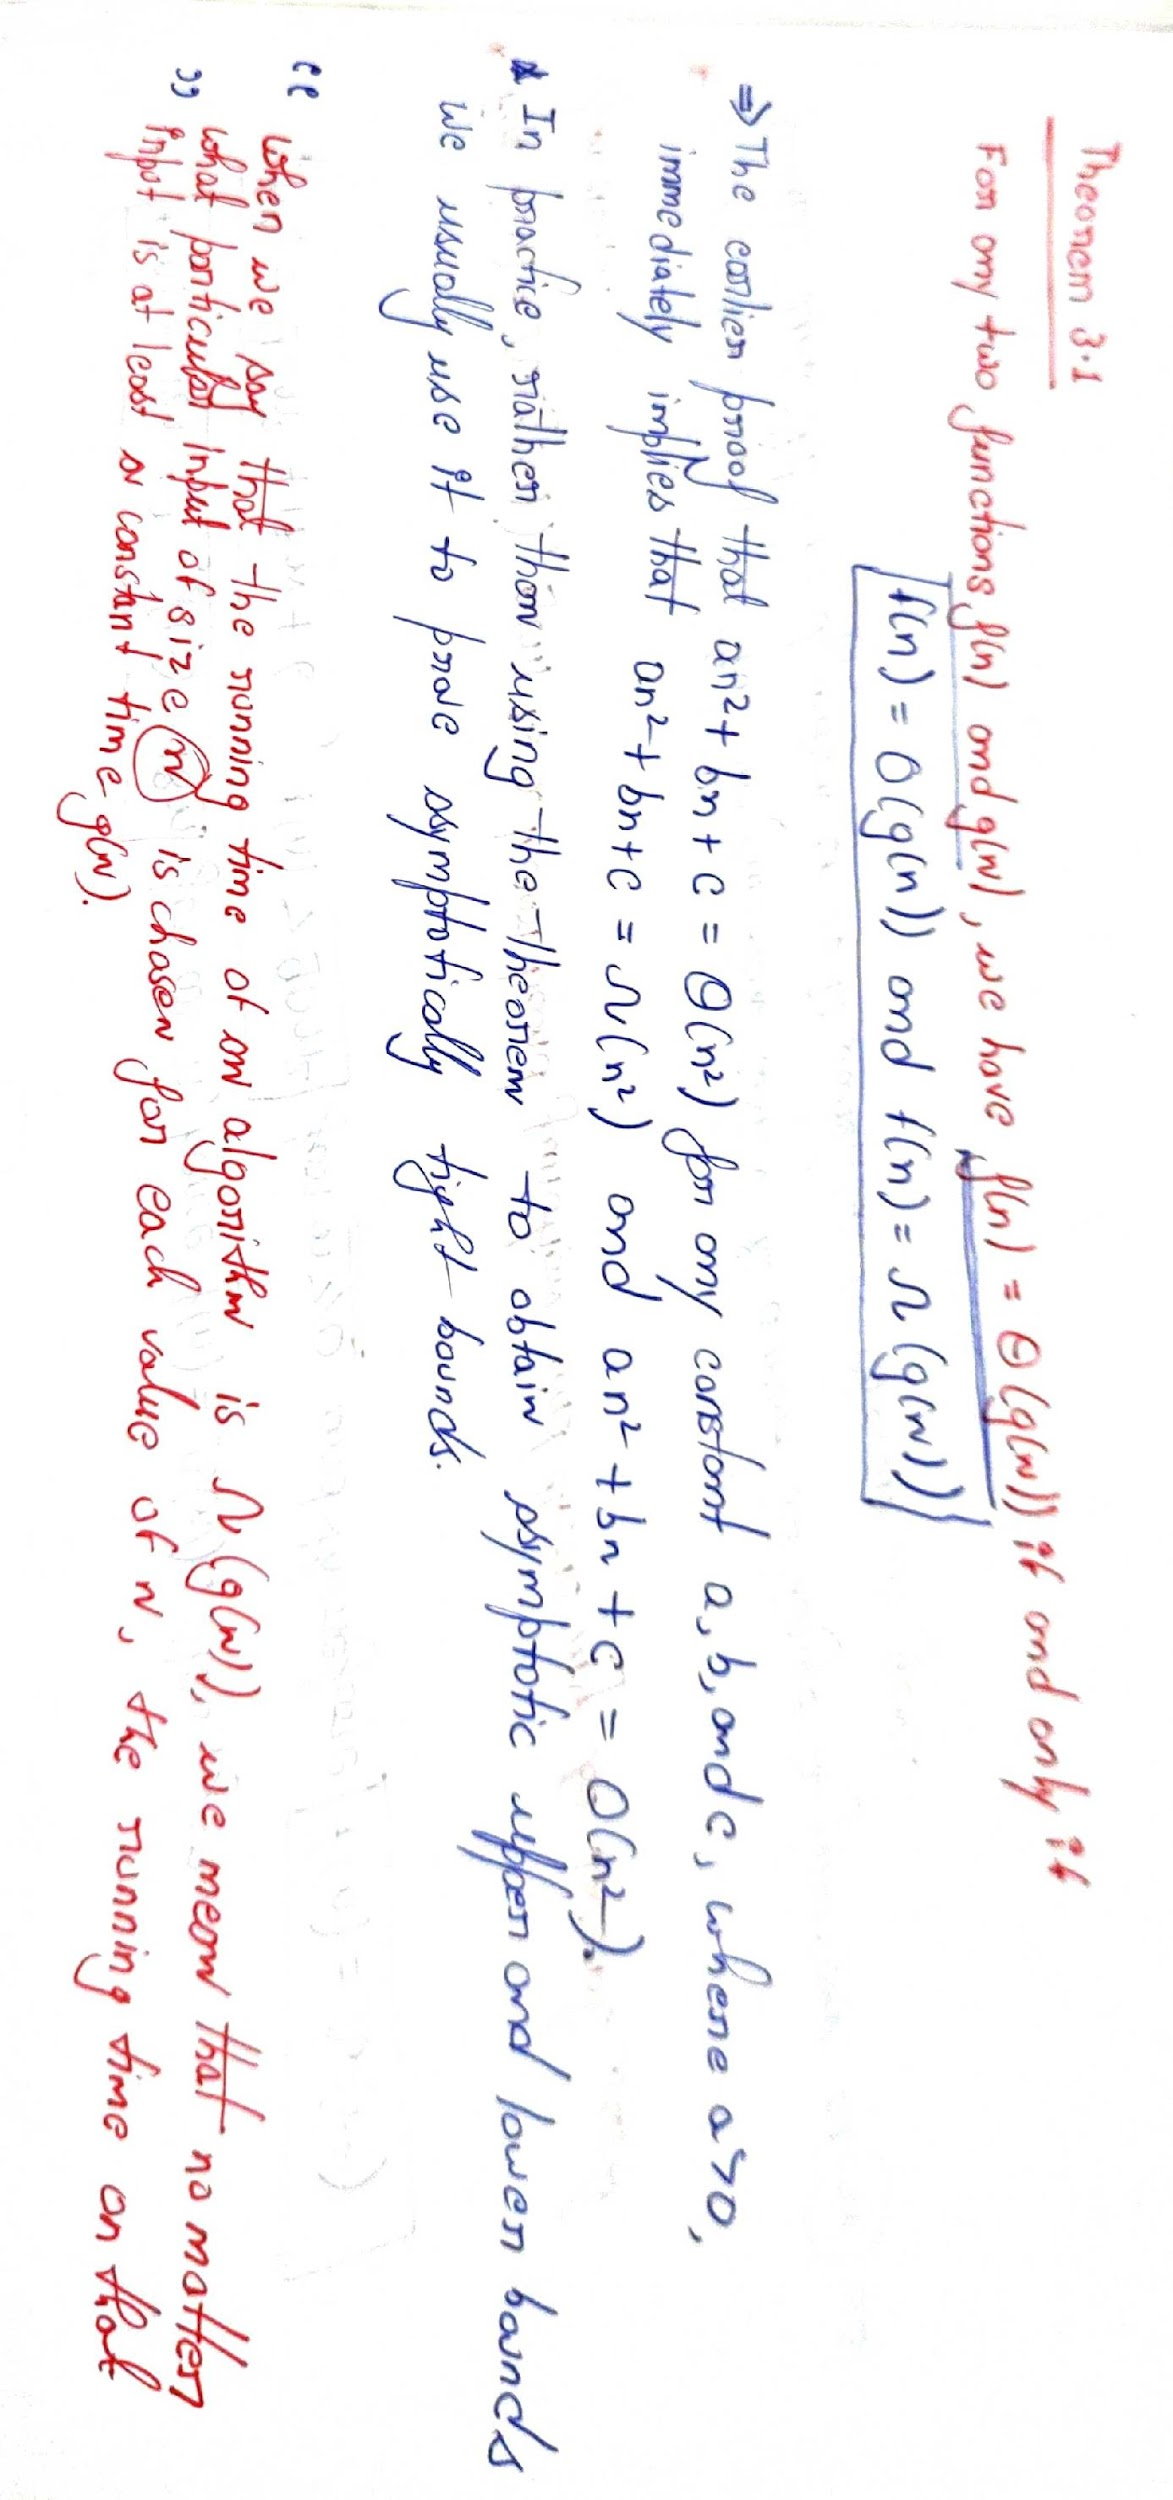 Theorem 3.1
For any two functions f(n) and g(n), we have f(n) = Θ(g(n)) if and only if
f(n) = O(g(n)) and f(n) = Ω(g(n))
⇒ The earlier proof that an²+ bn + c = Θ(n²) for any constant a, b, and c, where a>0,
immediately implies that an²+ bn + c = Ω(n²) and an² + bn + c = O(n²).
* In practice, rather than using the theorem to obtain asymptotic upper and lower bounds
we usually use it to prove asymptotically tight bounds.
“ when we say that the running time of an algorithm is Ω(g(n)), we mean that no matter
what particular input of size n is chosen for each value of n, the running time on that
” input is at least a constant time g(n).